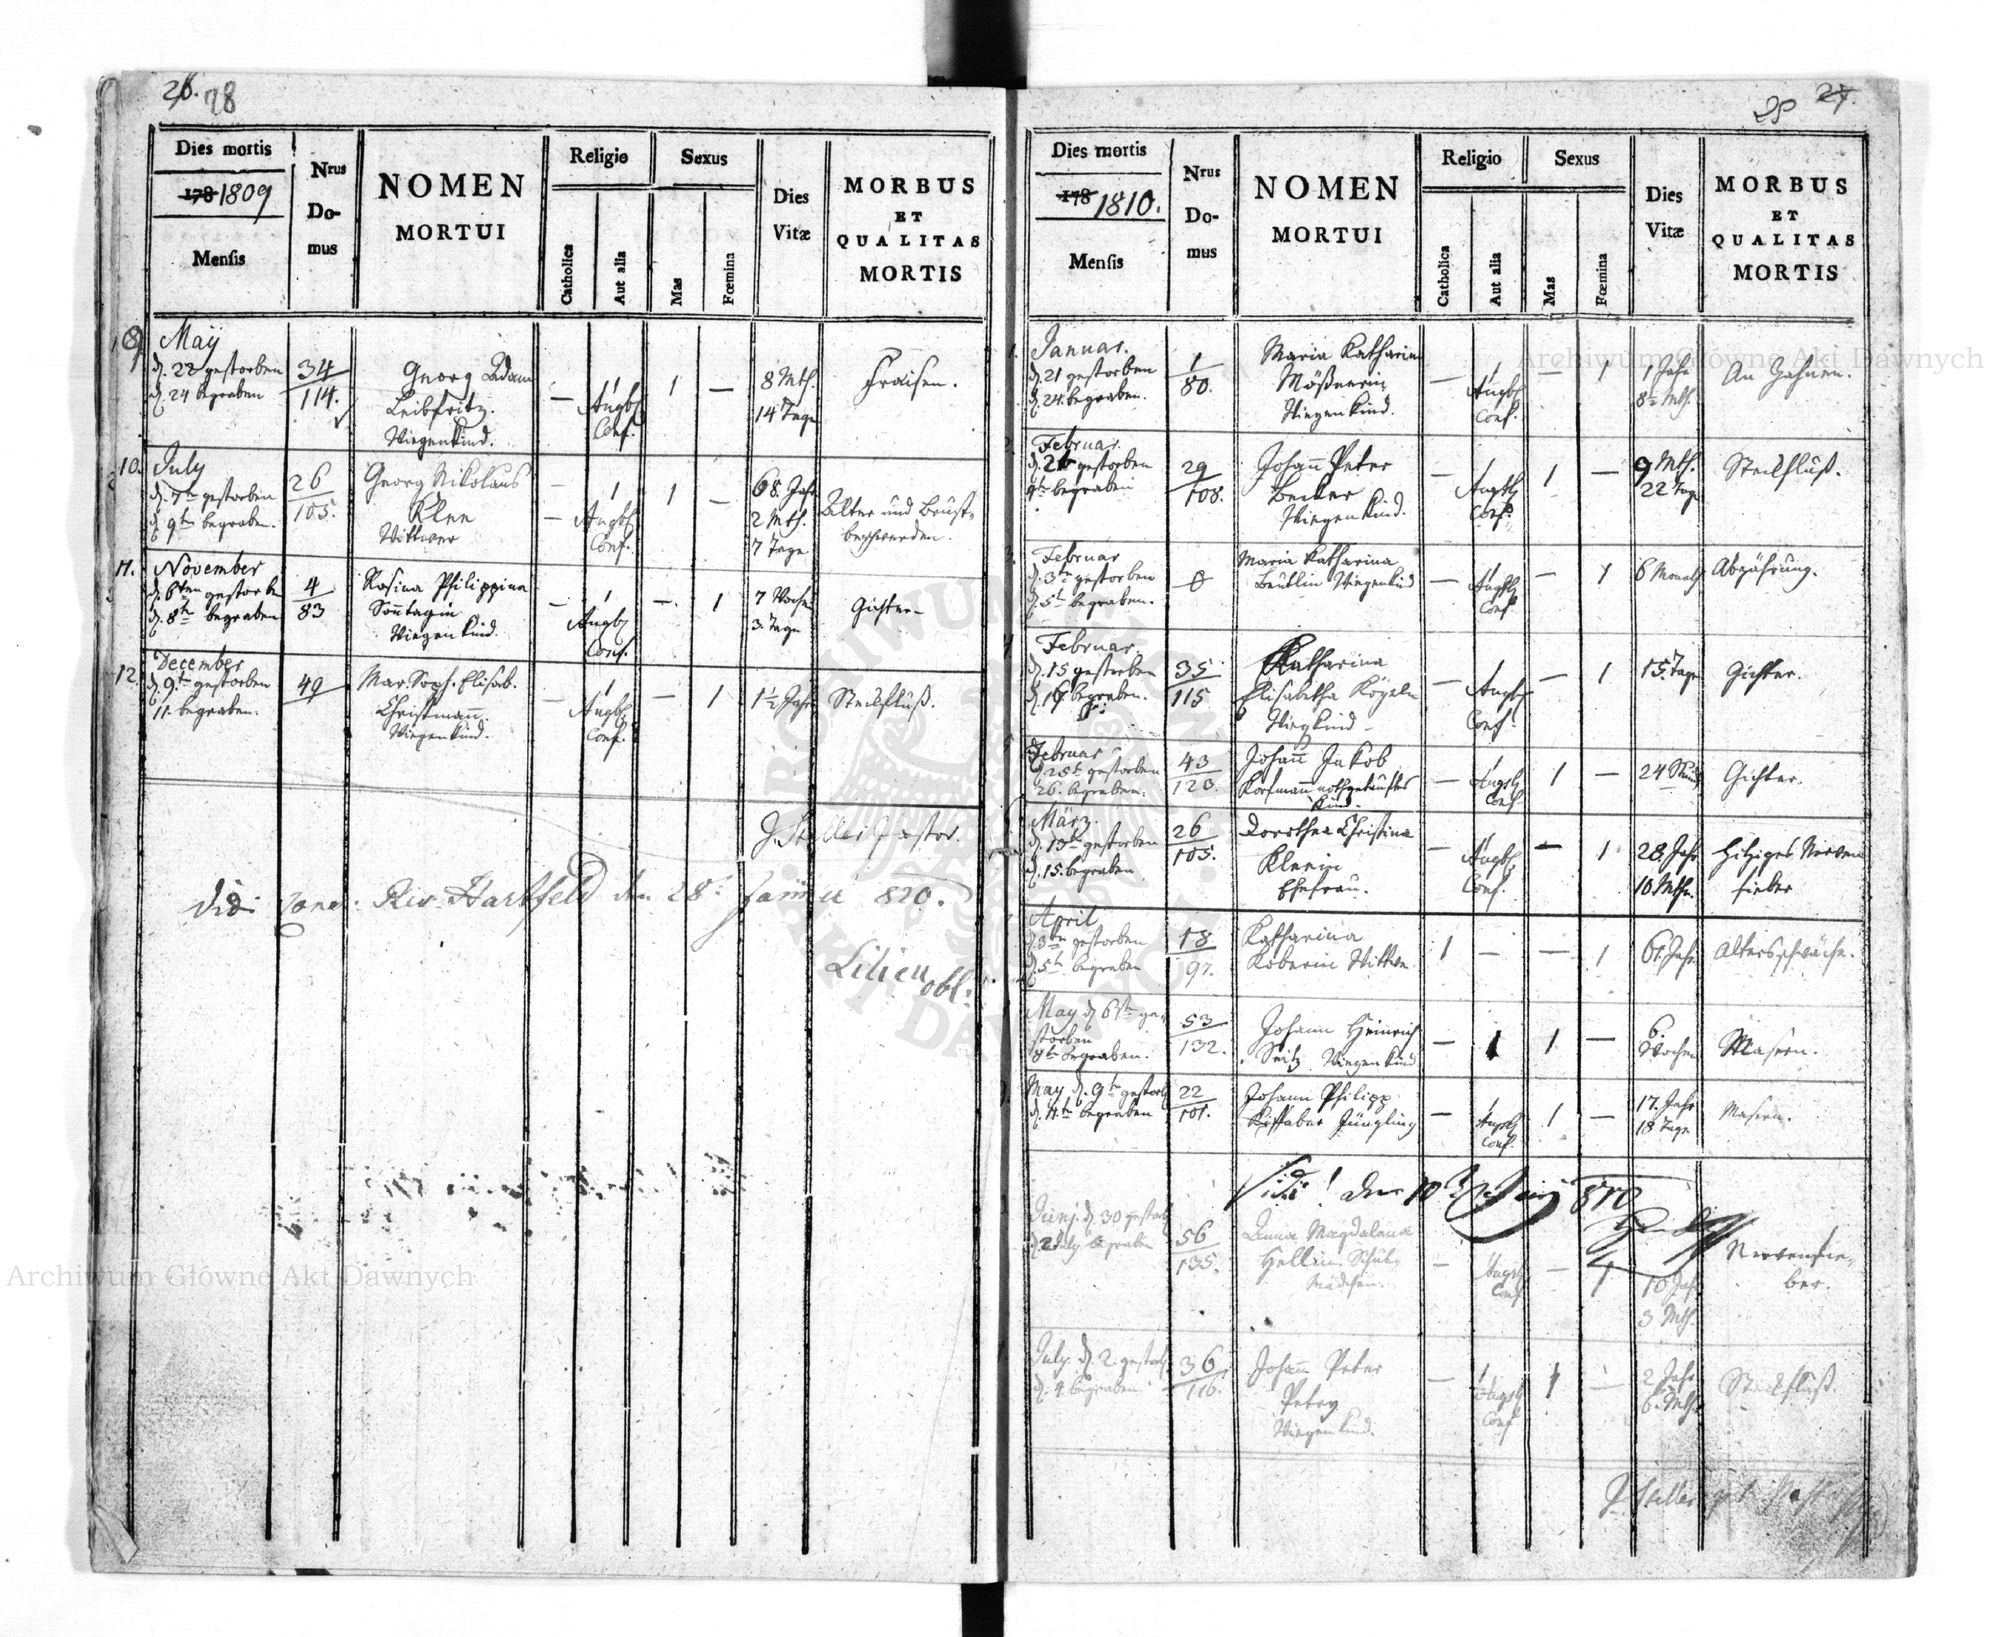 26. 28
Dies mortis
178 1809
Mensis
Nrus Do-mus
NOMEN
MORTUI
Religio
Catholica
Aut alia
Sexus
Mas
Fœmina
Dies
Vitæ
MORBUS
ET
QUALITAS
MORTIS
9 May
d. 22 gestorben
d. 24 begraben
34
114.
Georg Adam
Leibfritz.
Wiegenkind.
— 1 1 —
Augb
Conf.
8 Mth.
14 Tage
Fraisen.
10. July
d. 7tn gestorben
d. 9tn begraben.
26
105.
Georg Nikolaus
Klee
Wittwer
— 1 1 —
Augb
Conf.
68. Jahr
2 Mth.
7 Tage
Alter und Brust-
beschwerden.
11. November
d. 6ten gestorben
d. 8tn begraben
4
83
Rosina Philippina
Sonntagin
Wiegenkind.
— 1 — 1
Augb
Conf.
7 Wochen
3. Tage
Gichter
12. December
d. 9tn gestorben
11. begraben.
49
Mar. Soph. Elisab.
Christmann.
Wiegenkind.
— 1 — 1
Augb
Conf.
1½ Jahr
Steckfluß.
Pastor.
Vidi
Hartfeld den 28
820.
Lilien
obl.
25 27.
Dies mortis
178 1810.
Mensis
Nrus Do-mus
NOMEN
MORTUI
Religio
Catholica
Aut alia
Sexus
Mas
Fœmina
Dies
Vitæ
MORBUS
ET
QUALITAS
MORTIS
1. Januar.
d. 21 gestorben
d. 24. begraben.
1
80.
Maria Katharin
Mößnerin
Wiegenkind.
— 1 — 1
Augb
Conf.
1 Jahr
8½ Mth.
An Zahnen.
2. Februar.
gestorben
begraben
29
108.
Johann Peter
Becker
Wiegenkind.
— 1 1 —
Augb
Conf.
9 Mth.
22 Tage
Steckfluß.
3. Februar
d. 3tn gestorben
d. 5tn begraben.
Maria Katharina
Beutlin Wiegenkind
— 1 — 1
Augb
Conf.
6 Monath
Abzährung.
4 Februar.
d. 15 gestorben
begraben.
35
115
Katharina
Elisabetha Kögeln
Wiegkind
— 1 — 1
Augb
Conf.
15 Tage
Gichter.
Februar
d. 25tn gestorben
26. begraben.
43
123.
Johann Jakob
Korfmann nothgetauftes
Kind.
— 1 1 —
Augb
Conf.
24 Stund
Gichter.
März.
d. 13tn gestorben
d. 15. begraben.
26
105.
Dorothea Christina
Kleein
Ehefrau.
— 1 — 1
Augb
Conf.
28. Jahr
10 Mth.
Hitziges Nerven
fieber
April
d. 3tn gestorben
d. 5tn begraben
18
97.
Katharina
Koberin Wittwe
1 — — 1
61. Jahr
Altersschwäche.
May d. 6tn ge-
storben
8tn begraben.
53
132.
Johann Heinrich
Seitz Wiegenkind
— 1 1 —
6.
Wochen
Masern.
May d. 9tn gestorb
d. 11tn begraben
22
101.
Johann Philipp
Jüngling
— 1 1 —
Augb
Conf.
17. Jahr
18 Tage
Masern.
Vidi! den 10
810
Junj. d. 30 gestorb
d. 2 July begraben
56
135.
Anna Magdalena
Hellin Schul-
mädchen.
— 1 — 1
Augb
Conf
10 Jahr
3 Mth.
Nervenfie-
ber.
July. d. 2. gestorb
d. 4. begraben
36
116.
Johann Peter
Petry
Wiegenkind.
— 1 1 —
Augb
Conf
2 Jahr
6. Mth.
Steckfluß.
Archiwum Główne Akt Dawnych
Archiwum Główne Akt Dawnych
ARCHIWUM GŁÓWNE AKT DAWNYCH